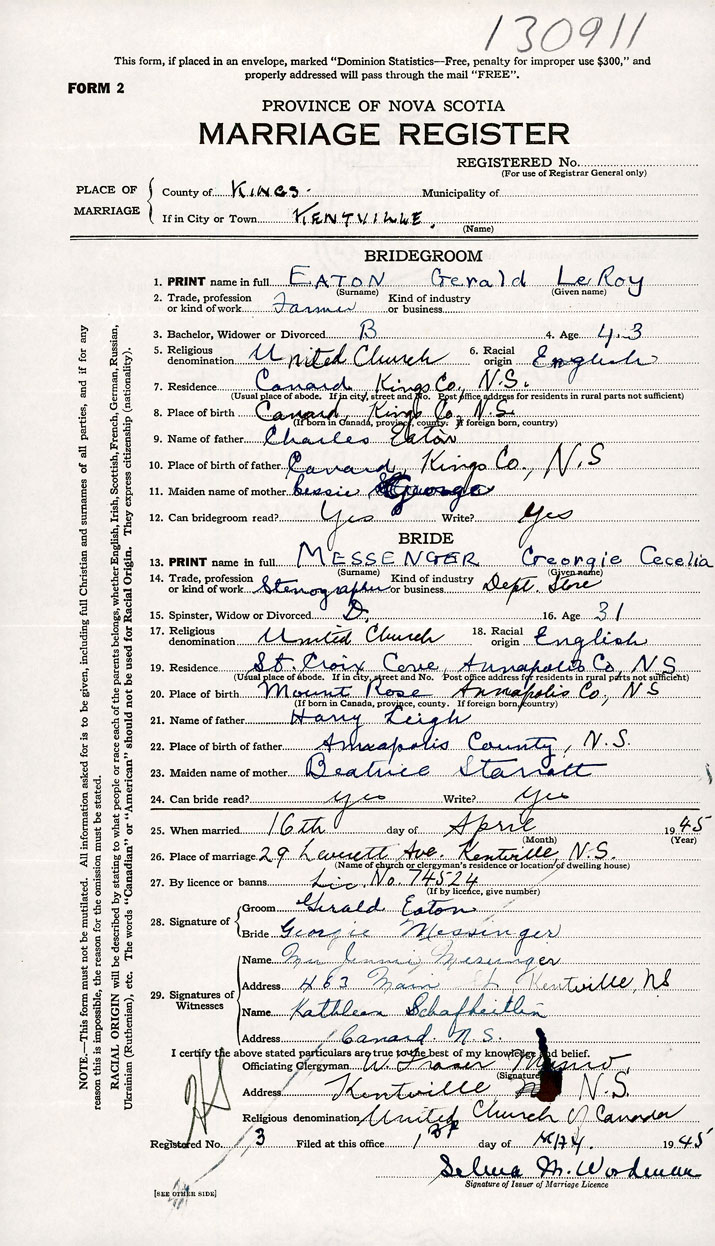 130911
This form, if placed in an envelope, marked "Dominion Statistics—Free, penalty for improper use $300," and
properly addressed will pass through the mail "FREE".
FORM 2
PROVINCE OF NOVA SCOTIA
MARRIAGE REGISTER
REGISTERED No.
(For use of Registrar General only)
PLACE OF MARRIAGE
County of KINGS. Municipality of
If in City or Town KENTVILLE.
(Name)
BRIDEGROOM
1. PRINT name in full EATON Gerald LeRoy
(Surname) (Given name)
2. Trade, profession or kind of work Farmer Kind of industry or business
3. Bachelor, Widower or Divorced B 4. Age 43
5. Religious denomination United Church 6. Racial origin English
7. Residence Canard Kings Co., N.S.
(Usual place of abode. If in city, street and No. Post office address for residents in rural parts not sufficient)
8. Place of birth Canard, Kings Co., N.S.
(If born in Canada, province, county. If foreign born, country)
9. Name of father Charles Eaton
10. Place of birth of father Canard, Kings Co., N.S
11. Maiden name of mother Bessie George
12. Can bridegroom read? Yes Write? Yes
BRIDE
13. PRINT name in full MESSENGER Georgie Cecelia
(Surname) (Given name)
14. Trade, profession or kind of work Stenographer Kind of industry or business Dept. Store
15. Spinster, Widow or Divorced D. 16. Age 31
17. Religious denomination United Church 18. Racial origin English
19. Residence St. Croix Cove, Annapolis Co, NS
(Usual place of abode. If in city, street and No. Post office address for residents in rural parts not sufficient)
20. Place of birth Mount Rose Annapolis Co, NS
(If born in Canada, province, county. If foreign born, country)
21. Name of father Harry Leigh
22. Place of birth of father Annapolis County, N.S.
23. Maiden name of mother Beatrice Starratt
24. Can bride read? yes Write? Yes
25. When married 16th day of April 1945
(Month) (Year)
26. Place of marriage 29 Leverett Ave. Kentville, N.S.
(Name of church or clergyman's residence or location of dwelling house)
27. By licence or banns Lic. No. 74524
(If by licence, give number)
28. Signature of
Groom Gerald Eaton
Bride Georgie Messinger
29. Signatures of Witnesses
Name Messinger
Address 463 Main St Kentville, NS
Name Kathleen Schafheitlin
Address Canard N.S.
I certify the above stated particulars are true to the best of my knowledge and belief.
Officiating Clergyman W. Fraser Munro
(Signature)
Address Kentville N.S.
Religious denomination United Church of Canada
Registered No. 3 Filed at this office 1st day of May. 1945
Selma M. Wordman
Signature of Issuer of Marriage Licence
[SEE OTHER SIDE]
NOTE.—This form must not be mutilated. All information asked for is to be given, including full Christian and surnames of all parties, and if for any
reason this is impossible, the reason for the omission must be stated.
RACIAL ORIGIN will be described by stating to what people or race each of the parents belongs, whether English, Irish, Scottish, French, German, Russian,
Ukrainian (Ruthenian), etc. The words "Canadian" or "American" should not be used for Racial Origin. They express citizenship (nationality).